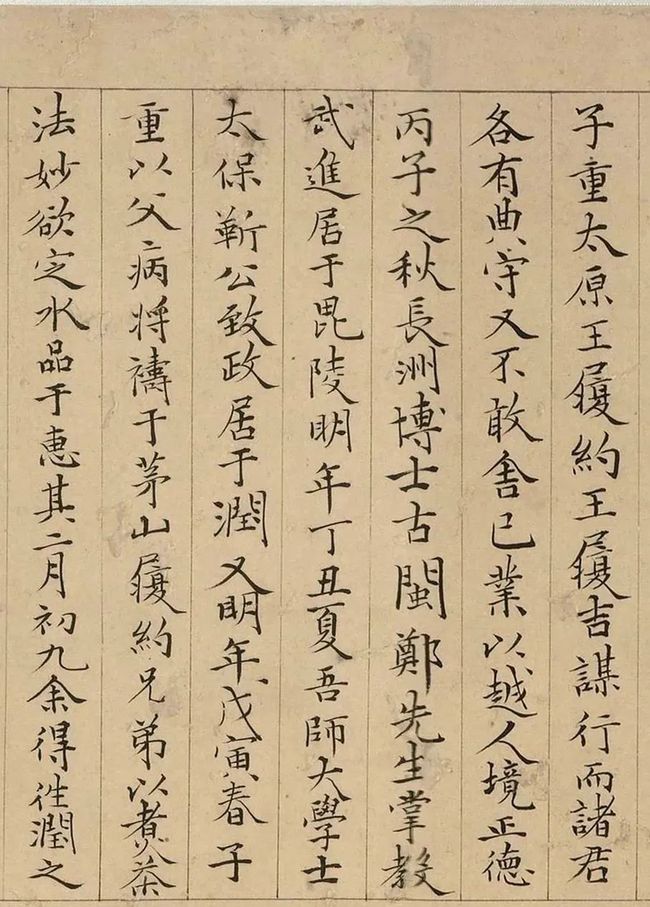 子重太原王履約王履吉謀行而諸君
各有典守又不敢舍己業以越人境正德
丙子之秋長洲博士古閩鄭先生掌教
武進居于毘陵明年丁丑夏吾師大學士
太保靳公致政居于潤又明年戊寅春子
重以父病將禱于茅山履約兄弟以煮茶
法妙欲定水品于惠其二月初九余得往潤之